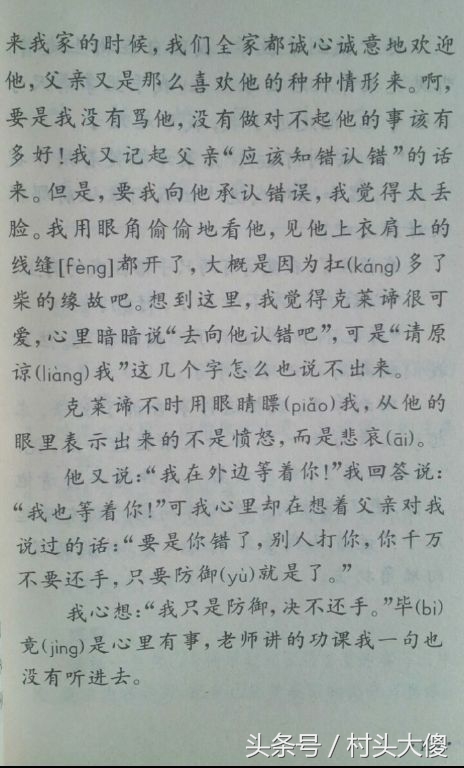 来我家的时候，我们全家都诚心诚意地欢迎
他，父亲又是那么喜欢他的种种情形来。啊，
要是我没有骂他，没有做对不起他的事该有
多好！我又记起父亲“应该知错认错”的话
来。但是，要我向他承认错误，我觉得太丢
脸。我用眼角偷偷地看他，见他上衣肩上的
线缝[fèng]都开了，大概是因为扛(káng)多了
柴的缘故吧。想到这里，我觉得克莱谛很可
爱，心里暗暗说“去向他认错吧”，可是“请原
谅(liàng)我”这几个字怎么也说不出来。
克莱谛不时用眼睛瞟(piǎo)我，从他的
眼里表示出来的不是愤怒，而是悲哀(āi)。
他又说：“我在外边等着你！”我回答说：
“我也等着你！”可我心里却在想着父亲对我
说过的话：“要是你错了，别人打你，你千万
不要还手，只要防御(yù)就是了。”
我心想：“我只是防御，决不还手。”毕(bì)
竟(jìng)是心里有事，老师讲的功课我一句也
没有听进去。
头条号 / 村头大傻